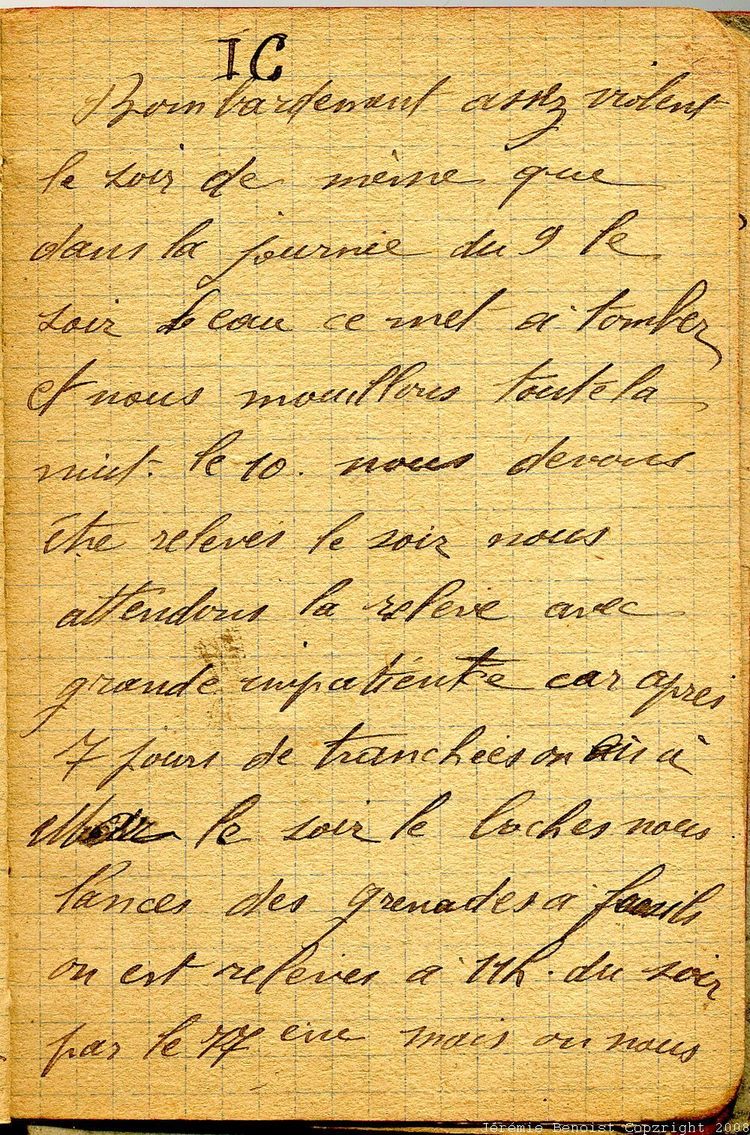 IC
Bombardement assez violent
le soir de même que
dans la journée du 9 le
soir l'eau ce met à tomber
et nous mouillons toute la
nuit. le 10. nous devons
être relevés le soir nous
attendons la relève avec
grande impatiente car après
7 jours de tranchées on à
le soir le boches nous
lances des grenades a fusils
on est relevés a 11h. du soir
par le 77 ème mais on nous
Jérémie Benoist Copzright 2008